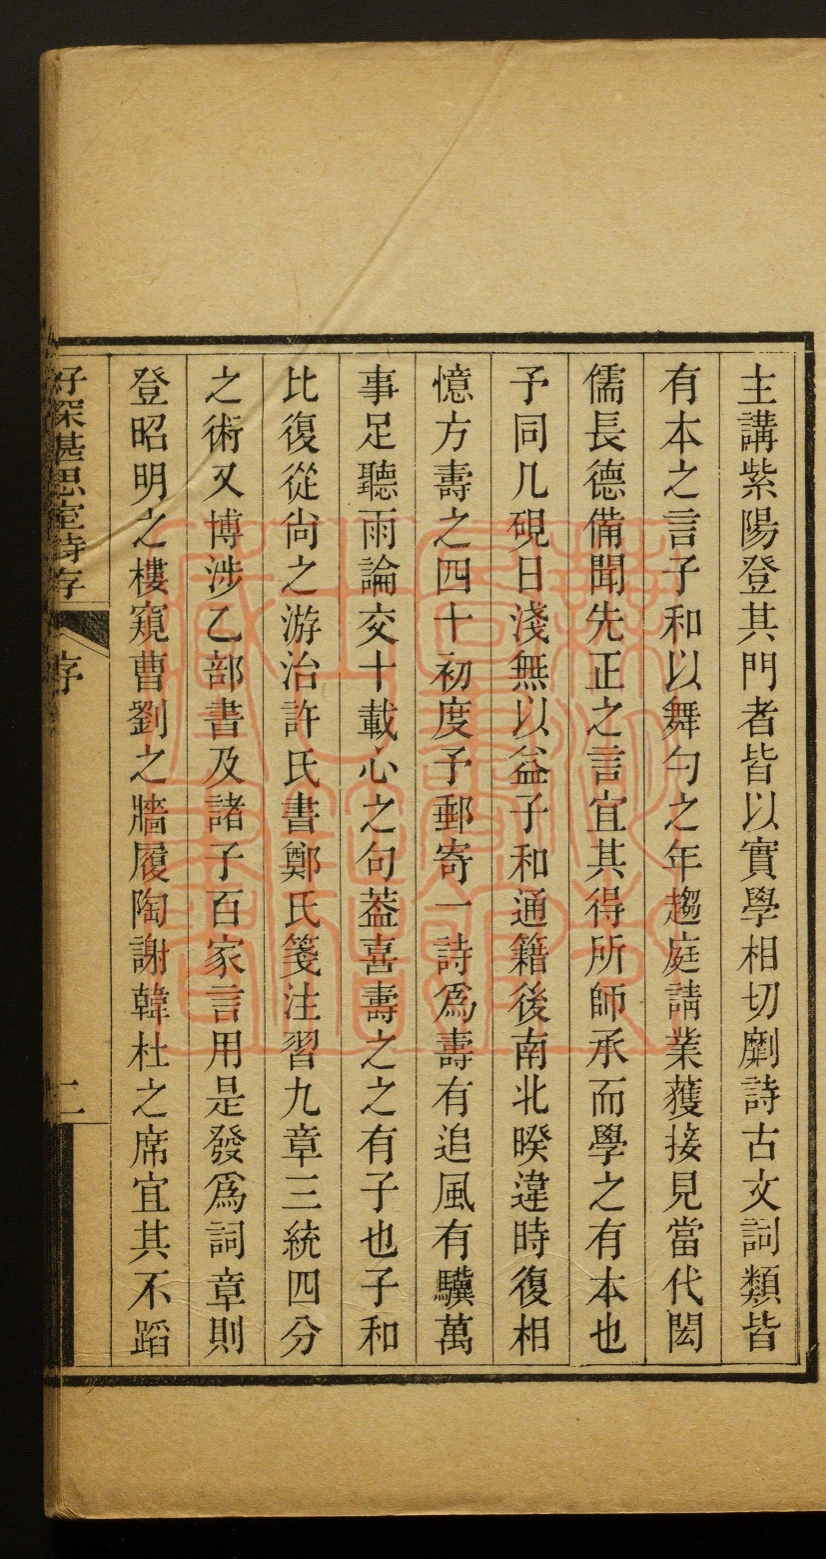 主講紫陽登其門者皆以實學相切劘詩古文詞類皆
有本之言子和以舞勺之年趨庭請業獲接見當代閎
儒長德備聞先正之言宜其得所師承而學之有本也
予同几硯日淺無以益子和通籍後南北暌違時復相
憶方壽之四十初度予郵寄一詩爲壽有追風有驥萬
事足聽雨論交十載心之句葢喜壽之之有子也子和
比復從尙之游治許氏書鄭氏箋注習九章三統四分
之術又博涉乙部書及諸子百家言用是發爲詞章則
登昭明之樓窺曹劉之牆履陶謝韓杜之席宜其不蹈
好深甚思室詩存 序 二